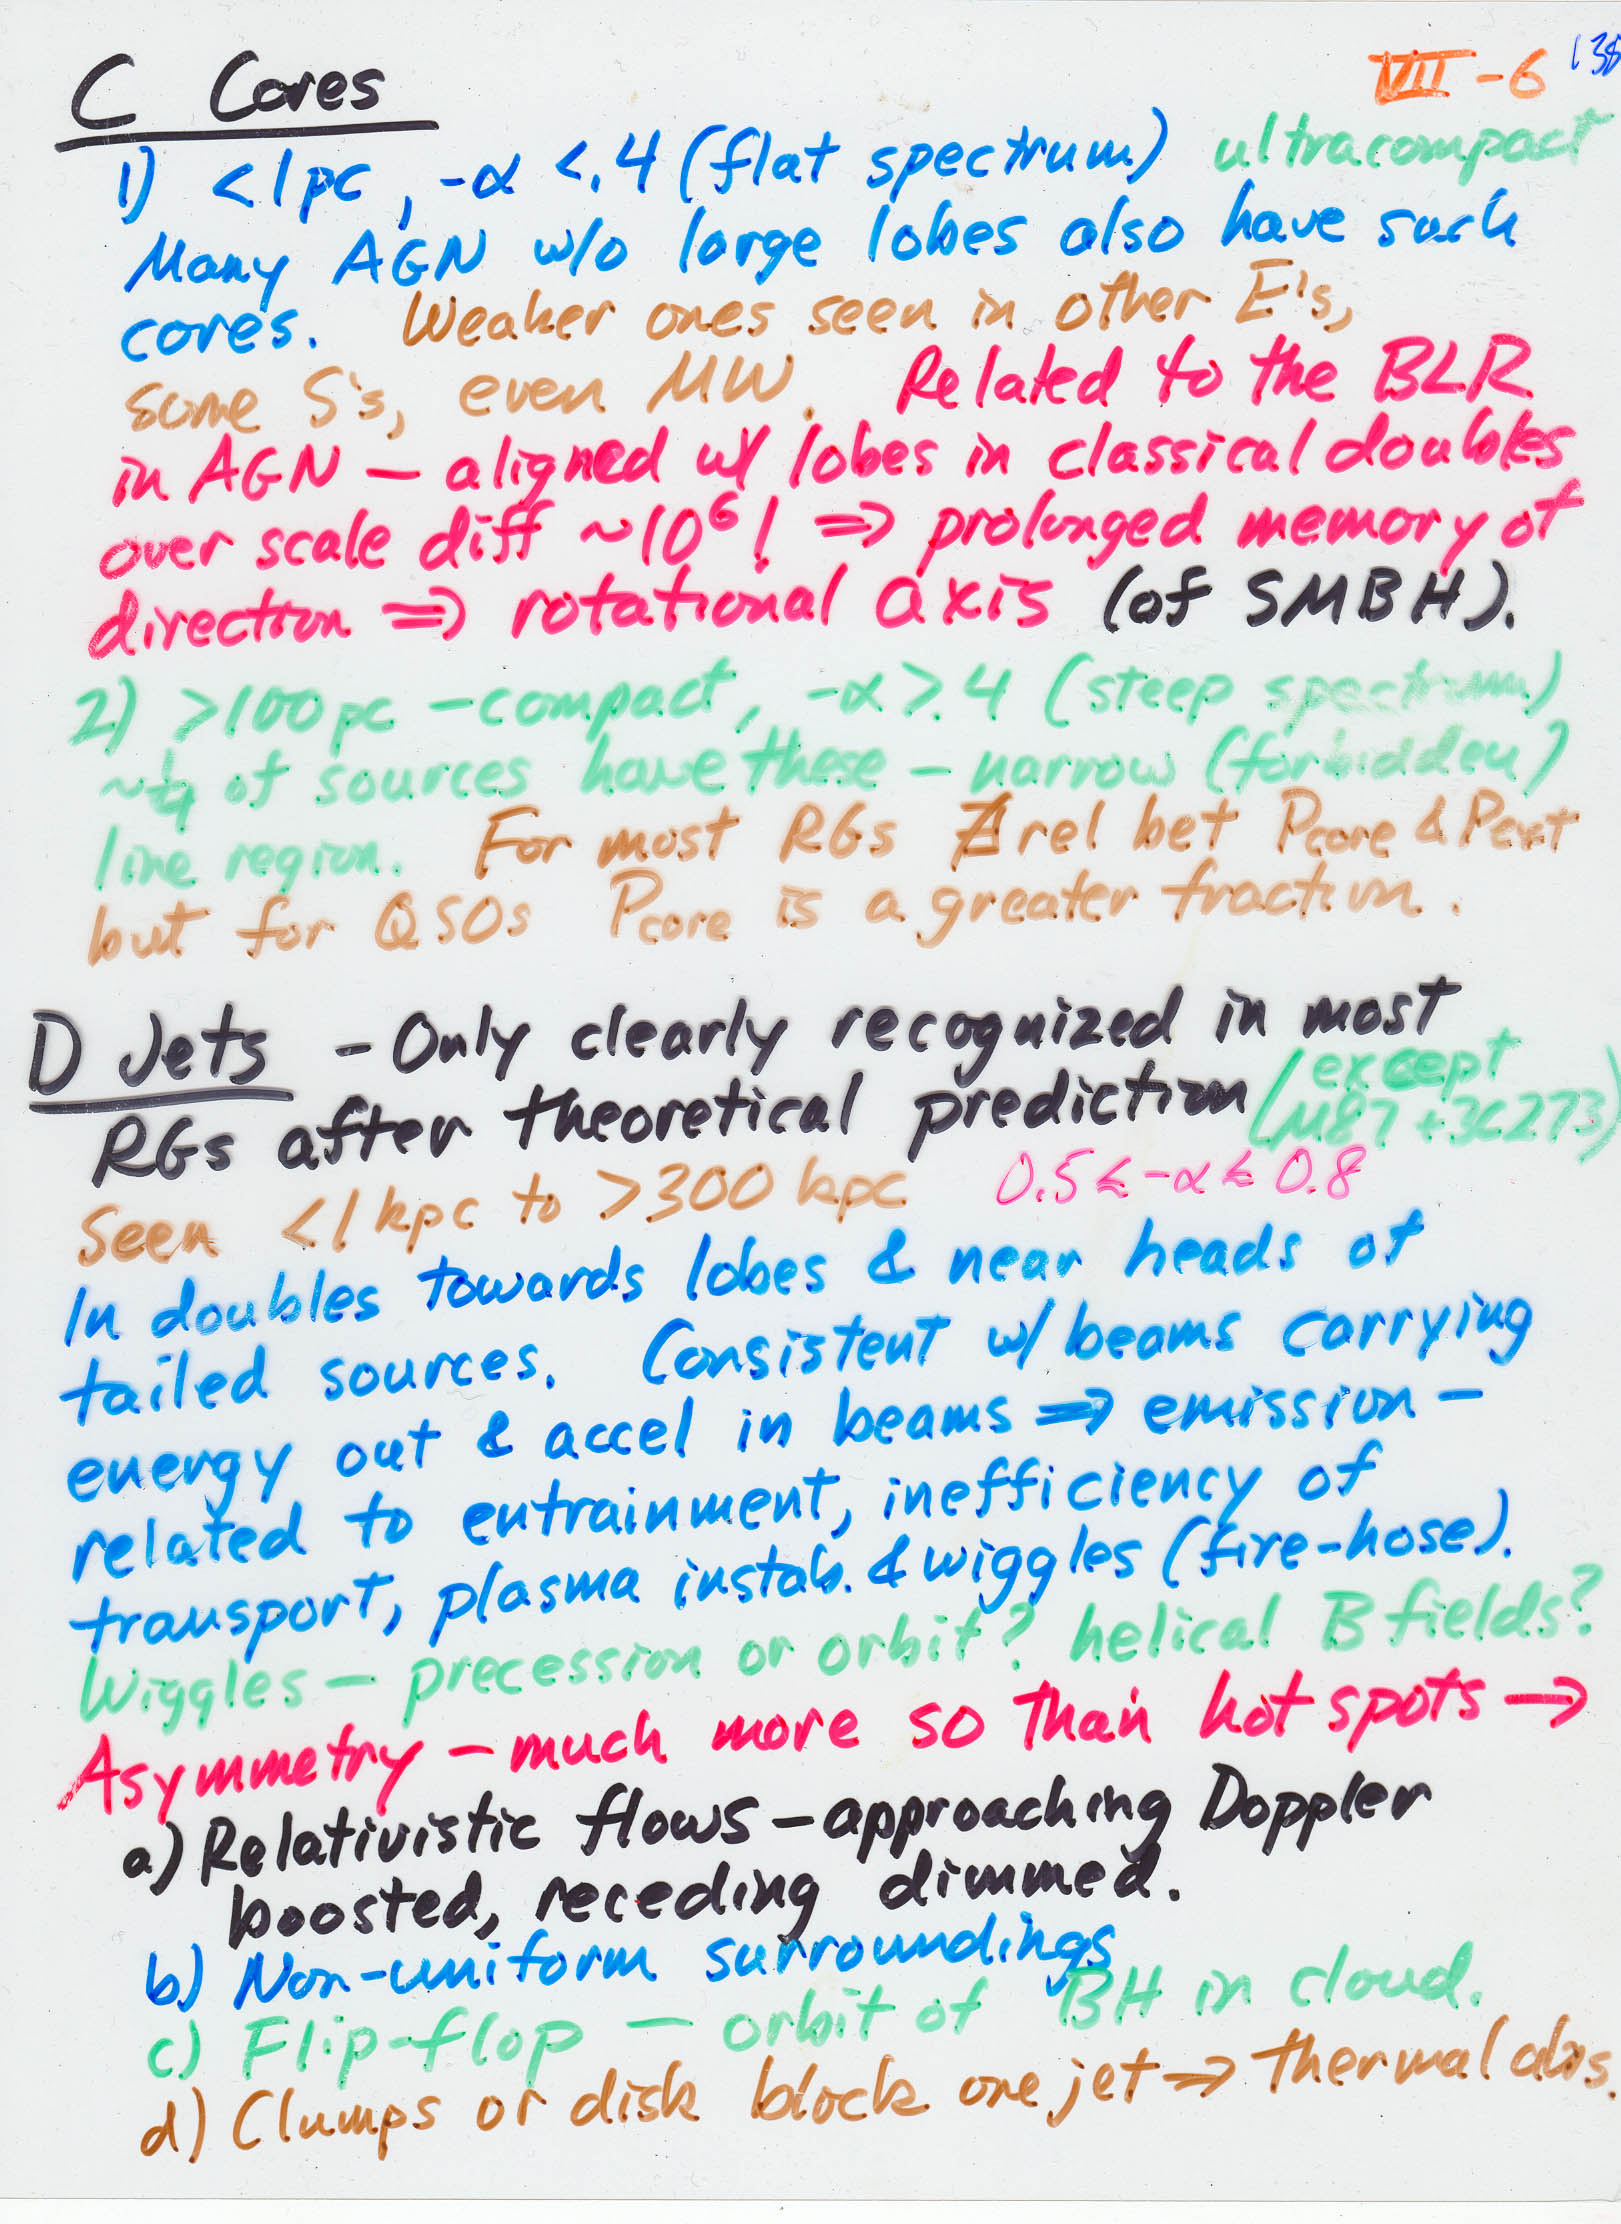 C Cores
VII-6 138
1) <1pc, -α <.4 (flat spectrum) ultracompact
Many AGN w/o large lobes also have such
cores. Weaker ones seen in other E's,
some S's, even MW. Related to the BLR
in AGN — aligned w/ lobes in classical doubles
over scale diff ~10⁶! ⇒ prolonged memory of
direction ⇒ rotational axis (of SMBH).
2) >100pc - compact, -α >.4 (steep spectrum)
~¼ of sources have these — narrow (forbidden)
line region. For most RGs ∄ rel bet Pcore & Pext
but for QSOs Pcore is a greater fraction.
D Jets - Only clearly recognized in most
RGs after theoretical prediction (except
M87 + 3C273)
Seen <1kpc to >300 kpc 0.5 ≤ -α ≤ 0.8
In doubles towards lobes & near heads of
tailed sources. Consistent w/ beams carrying
energy out & accel in beams ⇒ emission —
related to entrainment, inefficiency of
transport, plasma instab. & wiggles (fire-hose).
Wiggles — precession or orbit? helical B fields?
Asymmetry — much more so than hot spots →
a) Relativistic flows — approaching Doppler
boosted, receding dimmed.
b) Non-uniform surroundings
c) Flip-flop — orbit of BH in cloud.
d) Clumps or disk block one jet ⇒ thermal abs.